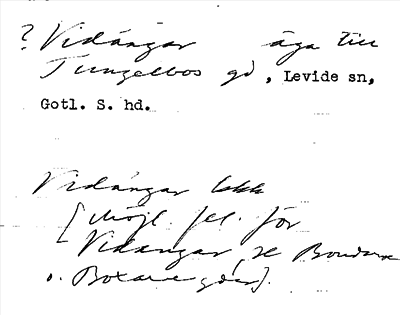 ? Vidångar äga till
Tungelbos gd, Levide sn,
Gotl. S. hd.
Vidångar
[Möjl. fel. för
Vidängar, se
o. Boxare gdr].